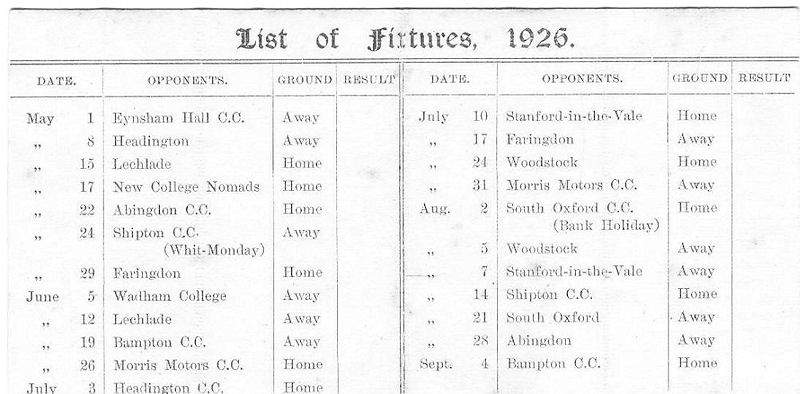 List of Fixtures, 1926.
DATE. OPPONENTS. GROUND RESULT DATE. OPPONENTS. GROUND RESULT
May 1 Eynsham Hall C.C. Away
„ 8 Headington Away
„ 15 Lechlade Home
„ 17 New College Nomads Home
„ 22 Abingdon C.C. Home
„ 24 Shipton C.C. Away
(Whit-Monday)
„ 29 Faringdon Home
June 5 Wadham College Away
„ 12 Lechlade Away
„ 19 Bampton C.C. Away
„ 26 Morris Motors C.C. Home
July 3 Headington C.C. Home
July 10 Stanford-in-the-Vale Home
„ 17 Faringdon Away
„ 24 Woodstock Home
„ 31 Morris Motors C.C. Away
Aug. 2 South Oxford C.C. Home
(Bank Holiday)
„ 5 Woodstock Away
„ 7 Stanford-in-the-Vale Away
„ 14 Shipton C.C. Home
„ 21 South Oxford Away
„ 28 Abingdon Away
Sept. 4 Bampton C.C. Home